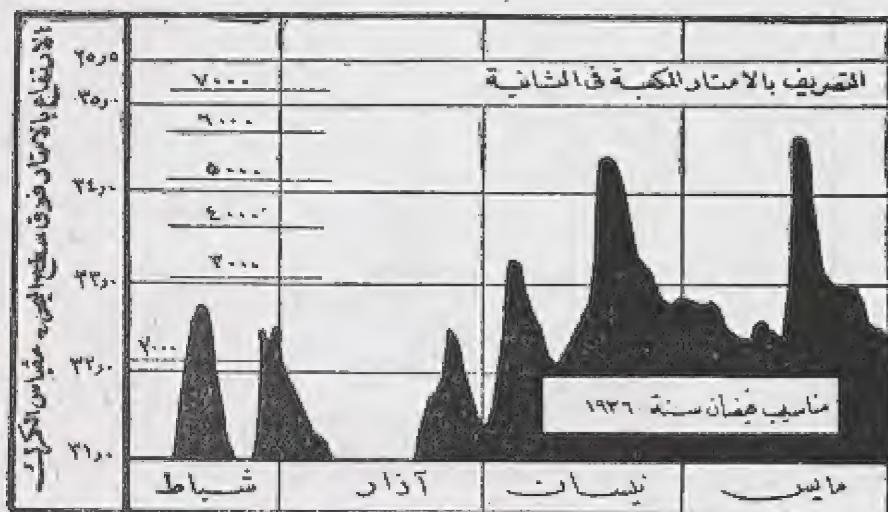 الارتفاع بالامتار فوق سطح البحر - مقياس الكرك
٣٥٫٥
٣٥٫٠
٣٤٫٠
٣٣٫٠
٣٢٫٠
٣١٫٠
٧٠٠٠
٦٠٠٠
٥٠٠٠
٤٠٠٠
٣٠٠٠
٢٠٠٠
التصريف بالامتار المكعبة في الثانية
مناسيب فيضان سنة ١٩٣٦
شباط
آذار
نيسان
مايس